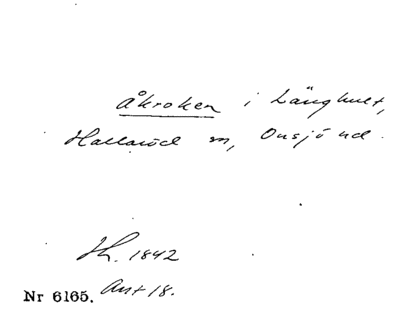 Åkroken i Länghult,
Hallaröd sn, Onsjö hd.
Hh. 1842
Nr 6165. Ant 18.